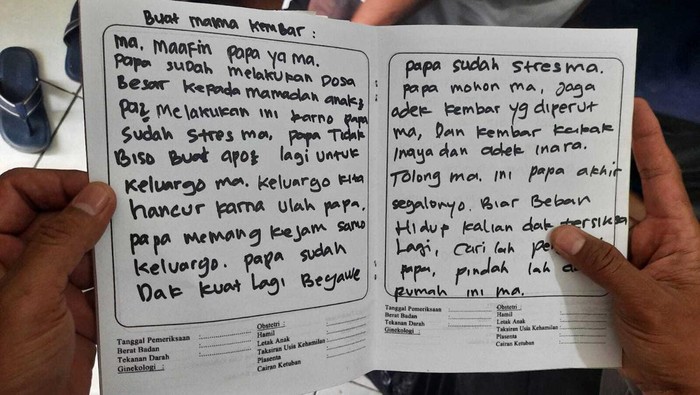 Buat mama Kembar :
ma, maafin papa ya ma.
Papa sudah melakukan Dosa
Besar kepada mamadan anak2
Pa2 melakukan ini karno papa
Sudah stres ma, papa Tidak
Biso Buat apo2 lagi untuk
Keluargo ma. Keluargo kita
hancur karna ulah papa.
papa memang kejam samo
Keluargo. papa sudah
Dak kuat Lagi Begawe
Tanggal Pemeriksaan :
Berat Badan :
Tekanan Darah :
Ginekologi :
Obstetri :
Hamil :
Letak Anak :
Taksiran Usia Kehamilan :
Plasenta :
Cairan Ketuban :
papa sudah stres ma.
papa mohon ma, Jaga
adek kembar yg diperut
ma, Dan kembar kakak
Inaya dan adek inara.
Tolong ma. ini papa akhir
segalonyo. Biar Beban
Hidup kalian dak tersiksa
Lagi, cari lah
papa, pindah lah
rumah ini ma.
Tanggal Pemeriksaan :
Berat Badan :
Tekanan Darah :
Ginekologi :
Obstetri :
Hamil :
Letak Anak :
Taksiran Usia Kehamilan :
Plasenta :
Cairan Ketuban :